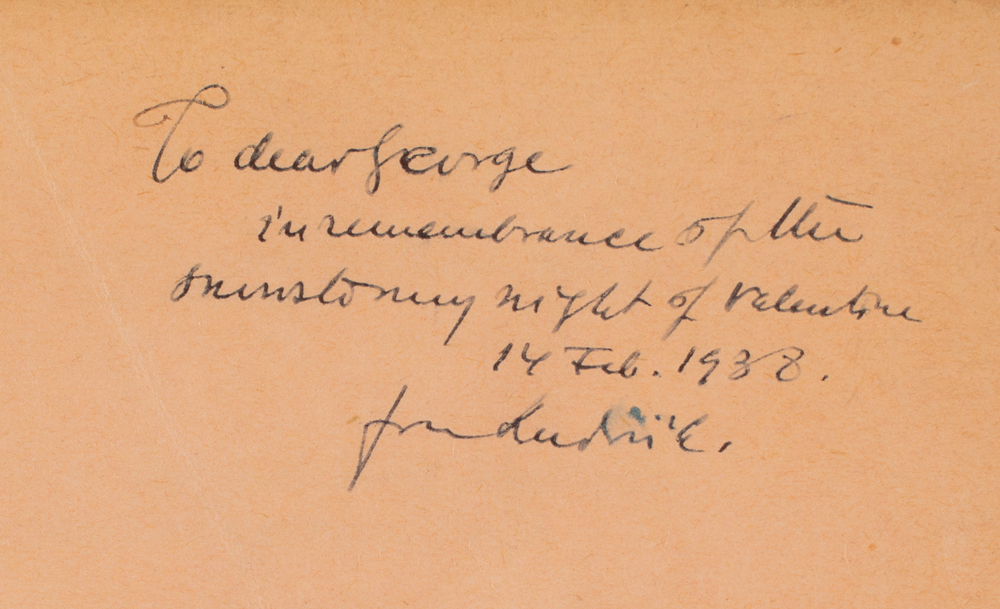 To dear George
in remembrance of the
snowstormy night of Valentine
14 Feb. 1938.
from